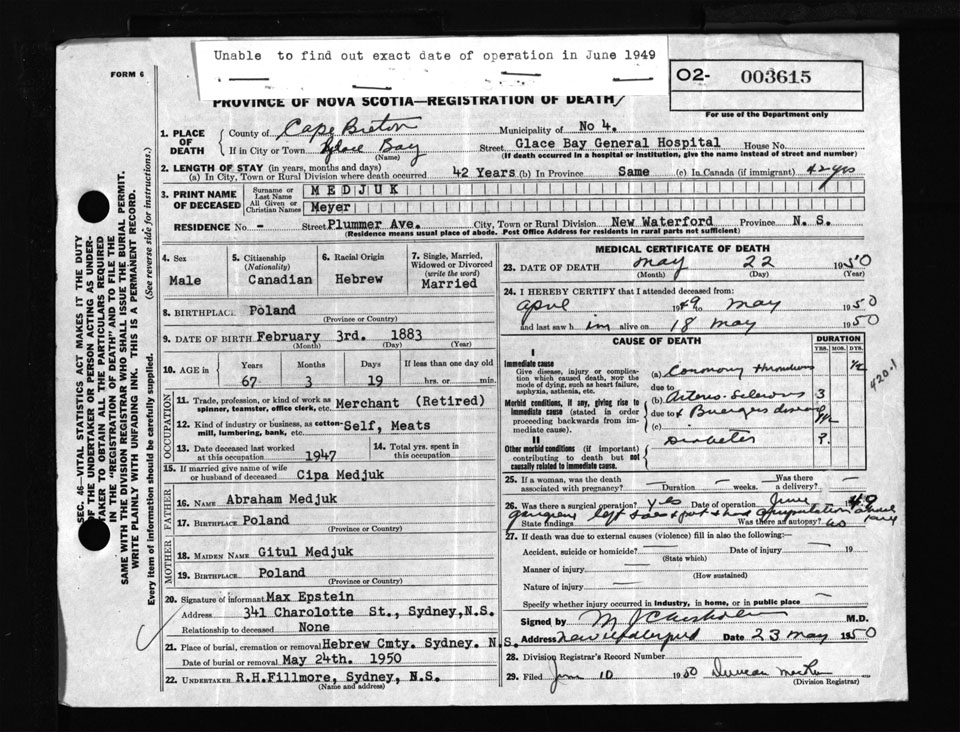 Unable to find out exact date of operation in June 1949
FORM 6
O2- 003615
For use of the Department only
PROVINCE OF NOVA SCOTIA—REGISTRATION OF DEATH
SEC. 46—VITAL STATISTICS ACT MAKES IT THE DUTY
OF THE UNDERTAKER OR PERSON ACTING AS UNDER-
TAKER TO OBTAIN ALL THE PARTICULARS REQUIRED
IN THE "REGISTRATION OF DEATH" AND TO FILE THE
SAME WITH THE DIVISION REGISTRAR WHO SHALL ISSUE THE BURIAL PERMIT.
WRITE PLAINLY WITH UNFADING INK. THIS IS A PERMANENT RECORD.
(See reverse side for instructions.)
Every item of information should be carefully supplied.
1. PLACE OF DEATH
County of Cape Breton Municipality of No 4.
If in City or Town Glace Bay (Name) Street Glace Bay General Hospital House No.
(If death occurred in a hospital or institution, give the name instead of street and number)
2. LENGTH OF STAY (in years, months and days)
(a) In City, Town or Rural Division where death occurred 42 Years (b) In Province Same (c) In Canada (if immigrant) 42 yrs
3. PRINT NAME OF DECEASED
Surname or Last Name MEDJUK
All Given or Christian Names Meyer
RESIDENCE No. - Street Plummer Ave. City, Town or Rural Division New Waterford Province N. S.
(Residence means usual place of abode. Post Office Address for residents in rural parts not sufficient)
4. Sex Male
5. Citizenship (Nationality) Canadian
6. Racial Origin Hebrew
7. Single, Married, Widowed or Divorced (write the word) Married
8. BIRTHPLACE Poland
(Province or Country)
9. DATE OF BIRTH February 3rd. 1883
(Month) (Day) (Year)
10. AGE in Years Months Days If less than one day old
67 3 19 hrs. or min.
OCCUPATION
11. Trade, profession, or kind of work as spinner, teamster, office clerk, etc. Merchant (Retired)
12. Kind of industry or business, as cotton-mill, lumbering, bank, etc. Self, Meats
13. Date deceased last worked at this occupation 1947
14. Total yrs. spent in this occupation
15. If married give name of wife or husband of deceased Cipa Medjuk
FATHER
16. Name Abraham Medjuk
17. Birthplace Poland
MOTHER
18. Maiden Name Gitul Medjuk
19. Birthplace Poland
(Province or Country)
20. Signature of informant Max Epstein
Address 341 Charolotte St., Sydney, N.S.
Relationship to deceased None
21. Place of burial, cremation or removal Hebrew Cmty. Sydney. N.S.
Date of burial or removal May 24th. 1950
22. UNDERTAKER R.H.Fillmore, Sydney, N.S.
(Name and address)
MEDICAL CERTIFICATE OF DEATH
23. DATE OF DEATH May 22 1950
(Month) (Day) (Year)
24. I HEREBY CERTIFY that I attended deceased from:
April 1949 to May 1950
and last saw h im alive on 18 May 1950
CAUSE OF DEATH
DURATION
YRS. MOS. DYS.
I
Immediate cause
Give disease, injury or complication which caused death, NOT the mode of dying, such as heart failure, asphyxia, asthenia, etc.
(a) Coronary thrombosis 1/2
due to
(b) Arterio-Sclerosis 3
Morbid conditions, if any, giving rise to immediate cause (stated in order proceeding backwards from immediate cause).
due to & Buergers disease
(c)
420-1
II
Other morbid conditions (if important) contributing to death but not causally related to immediate cause.
Diabetes ?
25. If a woman, was the death associated with pregnancy? Duration weeks. Was there a delivery?
26. Was there a surgical operation? Yes Date of operation June 49
State findings gangrene left toes & foot & had amputation
Was there an autopsy? no
27. If death was due to external causes (violence) fill in also the following:
Accident, suicide or homicide? Date of injury 19
(State which)
Manner of injury
(How sustained)
Nature of injury
Specify whether injury occurred in industry, in home, or in public place
Signed by M J Chisholm M.D.
Address New Waterford Date 23 May 1950
28. Division Registrar's Record Number
29. Filed June 10 1950 Duncan
(Division Registrar)